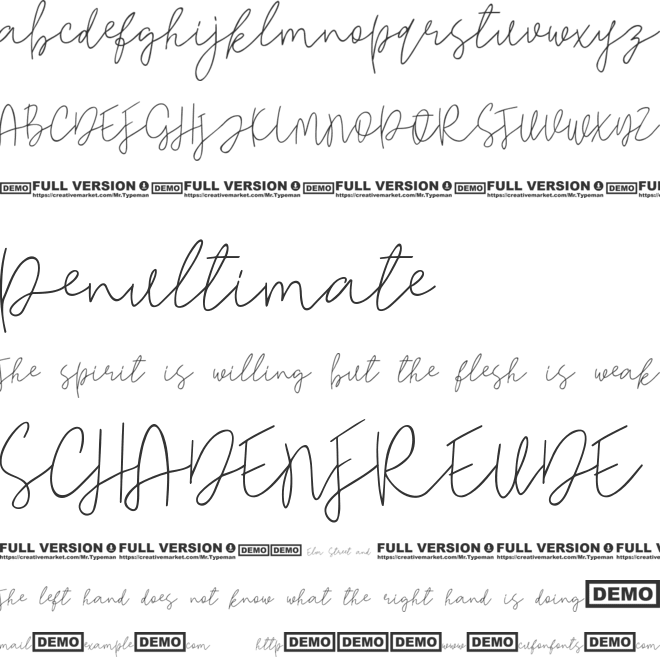 abcdefghijklmnopqrstuvwxyz
ABCDEFGHIJKLMNOPQRSTUVWXYZ
DEMO FULL VERSION https://creativemarket.com/Mr.Typeman DEMO FULL VERSION https://creativemarket.com/Mr.Typeman DEMO FULL VERSION https://creativemarket.com/Mr.Typeman DEMO FULL VERSION https://creativemarket.com/Mr.Typeman DEMO FUL https://
Penultimate
The spirit is willing but the flesh is weak
SCHADENFREUDE
FULL VERSION https://creativemarket.com/Mr.Typeman FULL VERSION https://creativemarket.com/Mr.Typeman DEMO DEMO Elm Street and FULL VERSION https://creativemarket.com/Mr.Typeman FULL VERSION https://creativemarket.com/Mr.Typeman FULL V https://crea
The left hand does not know what the right hand is doing DEMO
mail DEMO example DEMO com http DEMO DEMO DEMO www DEMO cufonfonts DEMO com